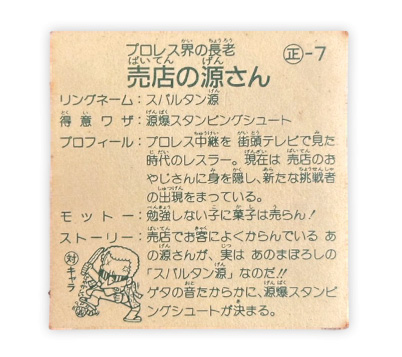 プロレス界の長老
㊣-7
売店の源さん
リングネーム：スパルタン源
得意ワザ：源爆スタンピングシュート
プロフィール：プロレス中継を 街頭テレビで見た
時代のレスラー。現在は 売店のお
やじさんに身を隠し、新たな挑戦者
の出現をまっている。
モットー：勉強しない子に菓子は売らん！
ストーリー：売店でお客によくからんでいる あ
の源さんが、実は あのまぼろしの
「スパルタン源」なのだ!!
ゲタの音たからかに、源爆スタンピ
ングシュートが決まる。
対
キャラ